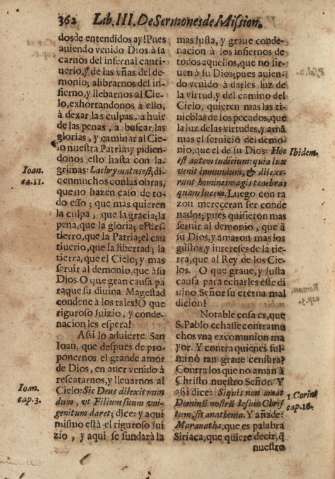 362 Lib. III. De Sermones de Mission.
dos de entendidos ay! Pues
auiendo venido Dios à la
carcel del infernal cautiuerio,
uerio, de las vñas del demonio,
nio, alibrarnos del infierno,
fierno, y lleuarnos al Cielo,
exhortandonos à ello,
à dexar las culpas, a huir
de las penas, à buscar las
glorias, y caminar al Cielo
nuestra Patria: y pidiendonos
esto hasta con lagrimas:
Lachrymatus est, dicen
muchos con las obras,
que no hazen caso de todo
esso; que mas quieren
la culpa, que la gracia; la
pena, que la gloria; el destierro,
que la Patria; el cautiuerio,
que la libertad; la
tierra, que el Cielo; y mas
seruir al demonio, que à su
Dios. O que gran causa para
que su diuina Magestad
condene à los tales! O que
riguroso juizio, y condenacion
les espera!
Assi lo aduierte San
Ioan, que después de proponernos
el grande amor
de Dios, en auer venido à
rescatarnos, y lleuarnos al
Cielo: Sic Deus dilexit mundum,
vt Filium suum vnigenitum
daret; dice: y aqui
mismo està el riguroso juizio,
y aqui se fundarà la
Ioan. ca. 11.
Ioan. cap. 3.
mas justa, y graue condenacion
à los infiernos de
todos aquellos, que no siruen
à su Dios; pues auiendo
venido à darles luz de
la virtud, y del camino del
Cielo, quieren mas las tinieblas
de los pecados, que
la luz de las virtudes, y aman
mas el seruicio del demonio,
que el de su Dios: Hoc
est autem iudicium: quia lux
venit in mundum, & dilexerunt
homines magis tenebras
quam lucem. Luego con razon
merecerán ser condenados;
pues quisieron mas
seruir al demonio, que à
su Dios, y amaron mas los
gustos, y intereses de la tierra,
que al Rey de los Cielos.
O que graue, y justa
causa para echarles este diuino
Señor su eterna maldicion!
Notable cosa es, que
S. Pablo echasse contra muchos
vna excomunion mayor.
Y contra quienes fulminó
tan graue censura?
Contra los que no aman à
Christo nuestro Señor. Y
assi dice: Si quis non amat
Dominum nostrum Iesum Christum,
sit anathema. Y añade:
Maranatha: que es palabra
Siriaca, que quiere decir, q
nuestro
Ibidem.
1. Corin. cap. 16.